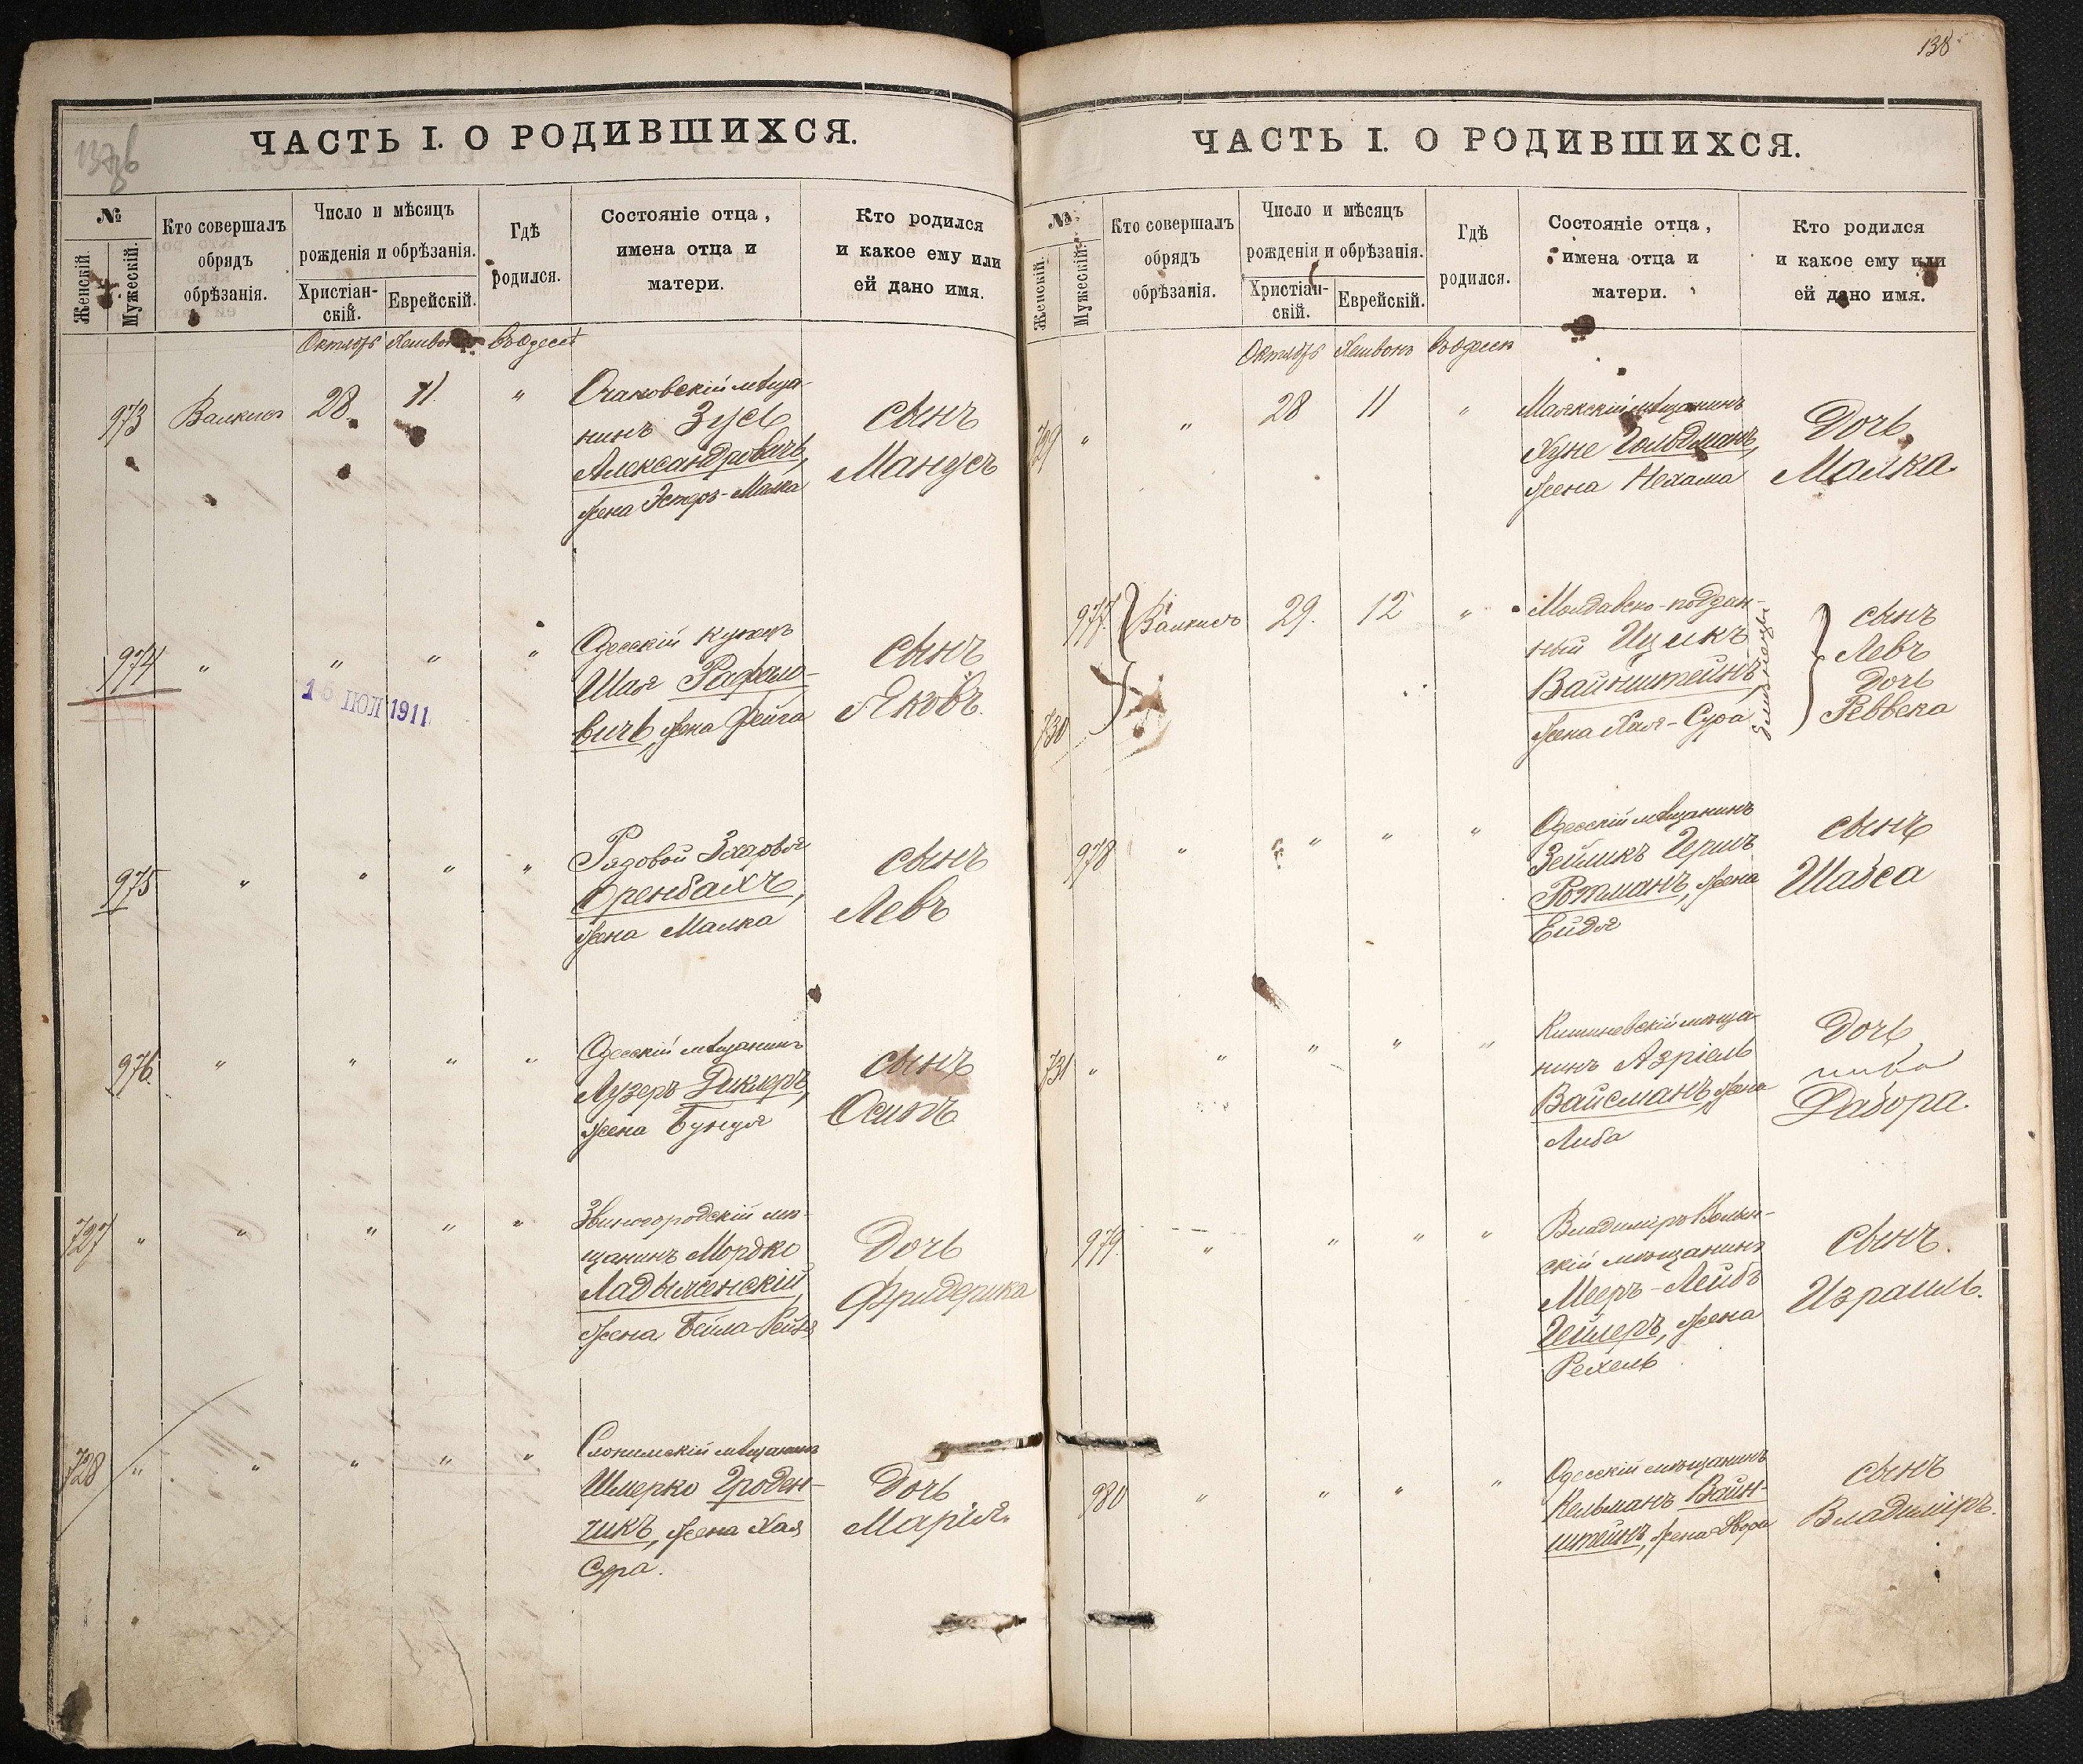 138
137об
ЧАСТЬ I. О РОДИВШИХСЯ.
№
Женскій.
Мужескій.
Кто совершалъ
обрядъ
обрѣзанія.
Число и мѣсяцъ
рожденія и обрѣзанія.
Христіан-
скій.
Еврейскій.
Гдѣ
родился.
Состояніе отца,
имена отца и
матери.
Кто родился
и какое ему или
ей дано имя.
Октябрь Хешвонъ Въ Одессѣ
973 28. 11 "
Очаковскій мѣща-
нинъ Зусь
Александровичъ,
жена Эстеръ-Малка
сынъ
Манусъ
974 " " " "
Одесскій купецъ
Шая Рафало-
вичъ, жена Фейга
сынъ
Яковъ.
16 ІЮЛ 1911
975 " " " "
Рядовой Захарья
Оренбахъ,
жена Малка
сынъ
Левъ
976. " " " "
Одесскій мѣщанинъ
Лузеръ Диклеръ,
жена Бунця
сынъ
Осипъ
727 " " " " "
Звиногородскій мѣ-
щанинъ Мордко
Ладыженскій,
жена Бейла-Рейзя
Дочь
Фридерика
728 " " " " "
Слонимскій мѣщанинъ
Шмерко Гроден-
чикъ, жена Хая
Сура.
Дочь
Марія.
ЧАСТЬ I. О РОДИВШИХСЯ.
№
Женскій.
Мужескій.
Кто совершалъ
обрядъ
обрѣзанія.
Число и мѣсяцъ
рожденія и обрѣзанія.
Христіан-
скій.
Еврейскій.
Гдѣ
родился.
Состояніе отца,
имена отца и
матери.
Кто родился
и какое ему или
ей дано имя.
Октябрь Хешвонъ Въ Одессѣ
729 " " 28 11 "
Маякскій мѣщанинъ
Хуне Гольдманъ,
жена Нехама
Дочь
Малка.
977. 29. 12 "
730
Молдавско-поддан-
ный Ицикъ
Вайнштейнъ,
жена Хая-Сура
сынъ
Левъ
Дочь
Реввека
978 " " " "
Одесскій мѣщанинъ
Зейликъ Гершъ
Ротманъ, жена
Ейдя
сынъ
Шабса
731 " " " " "
Кишиневскій мѣща-
нинъ Азріель
Вайсманъ, жена
Либа
Дочь
Дабора.
979. " " " "
Владиміръ Волын-
скій мѣщанинъ
Мееръ-Лейбъ
Гейлеръ, жена
Рехель
сынъ.
Израиль.
980 " " " "
Одесскій мѣщанинъ
Кельманъ Вайн-
штейнъ, жена Двора
сынъ
Владиміръ.